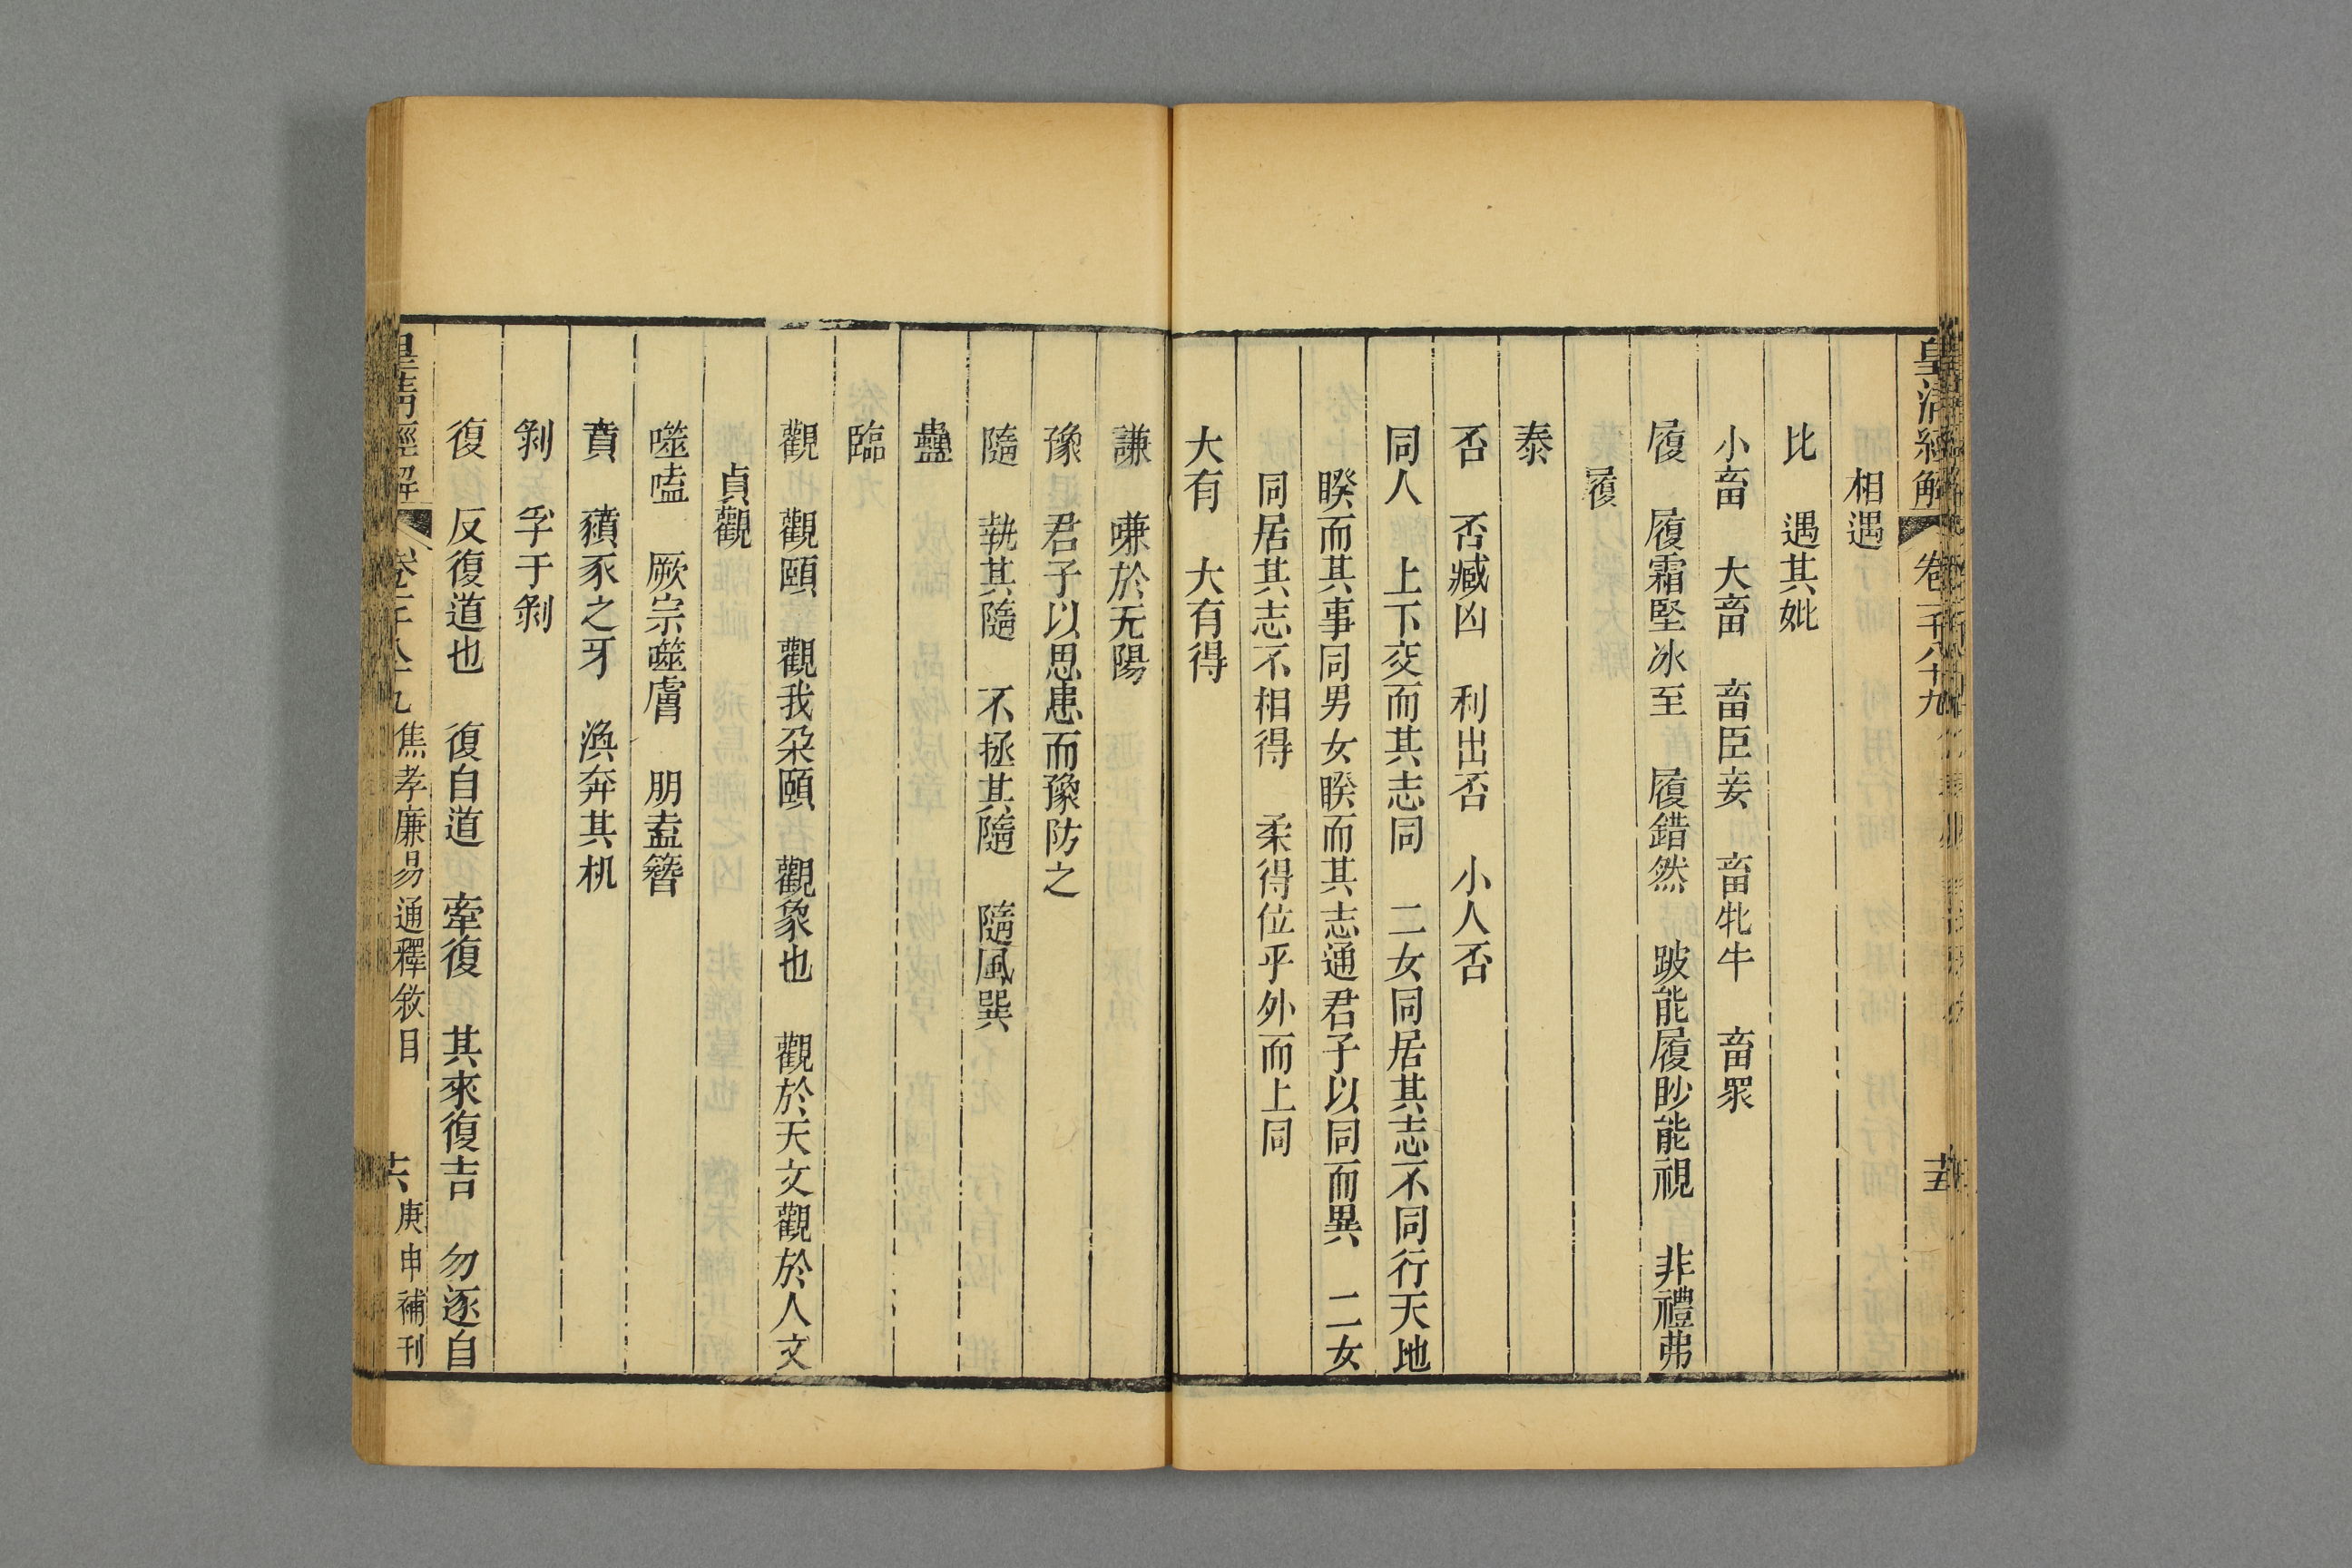 皇清經解 卷一千八十九
相遇
比 遇其妣
小畜 大畜 畜臣妾 畜牝牛 畜眾
履 履霜堅冰至 履錯然 跛能履眇能視 非禮弗
履
泰
否 否臧凶 利出否 小人否
同人 上下交而其志同 二女同居其志不同行天地
睽而其事同男女睽而其志通君子以同而異 二女
同居其志不相得 柔得位乎外而上同
大有 大有得
謙 嗛於无陽
豫 君子以思患而豫防之
隨 執其隨 不拯其隨 隨風巽
蠱
臨
觀 觀頤 觀我朵頤 觀象也 觀於天文觀於人文
貞觀
噬嗑 厥宗噬膚 朋盍簪
賁 豶豕之牙 渙奔其机
剝 孚于剝
復 反復道也 復自道 牽復 其來復吉 勿逐自
皇清經解 卷一千八十九 焦孝廉易通釋敘目 六 庚申補刊